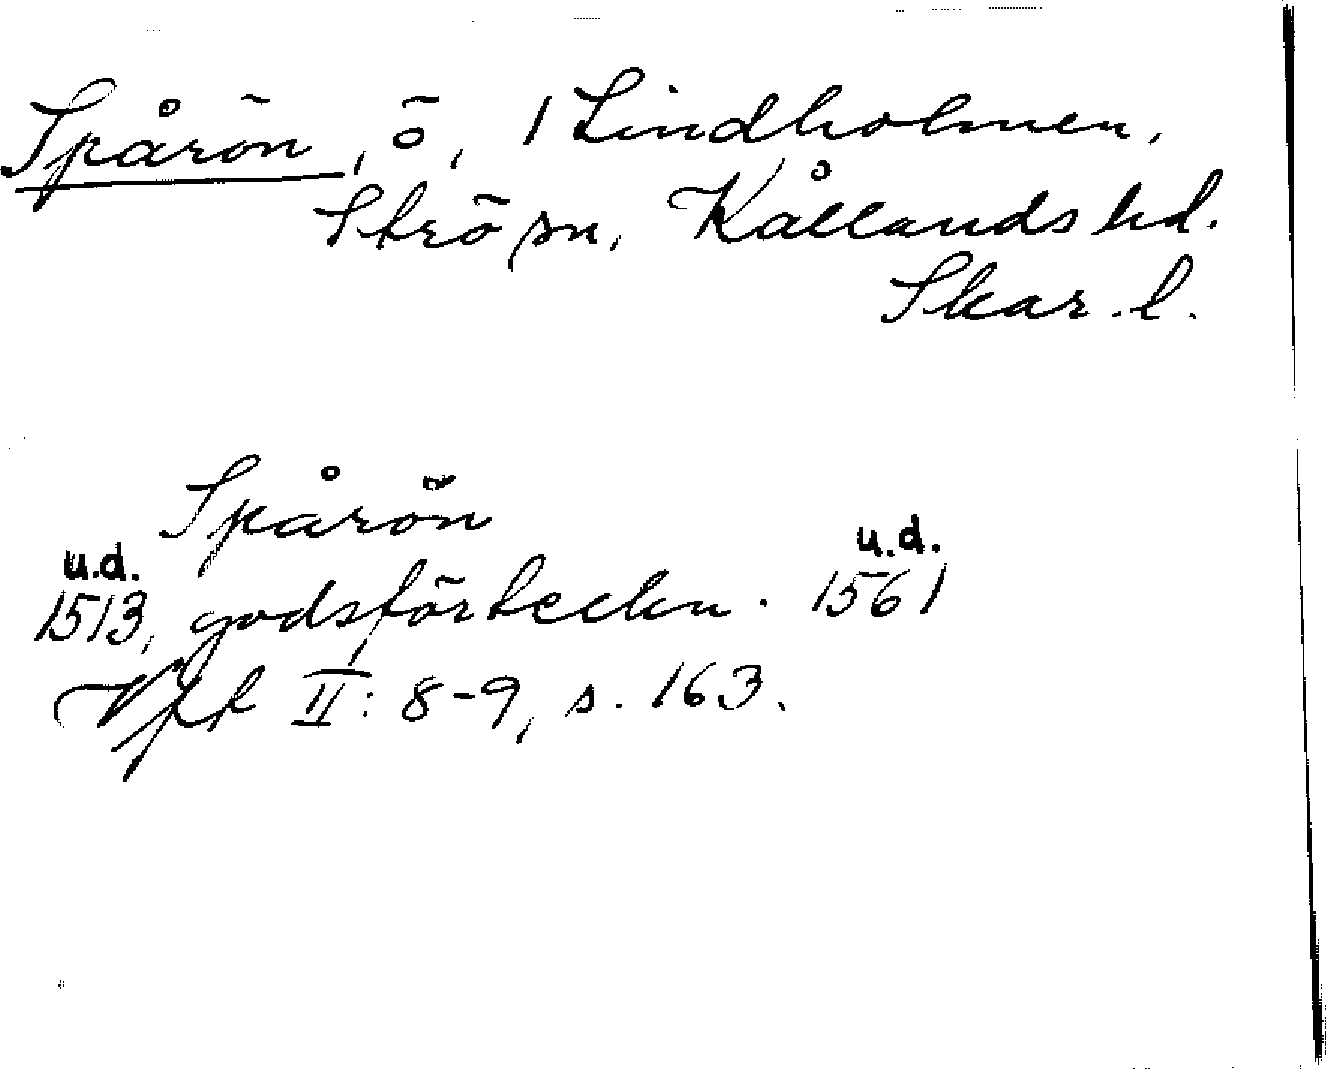 Spårön, ö, 1 Lindholmen,
Strö sn, Kållands hd.
Skar. l.
Spårön
u.d. u.d.
1513, godsförteckn. 1561
Vfft II: 8-9, s. 163.